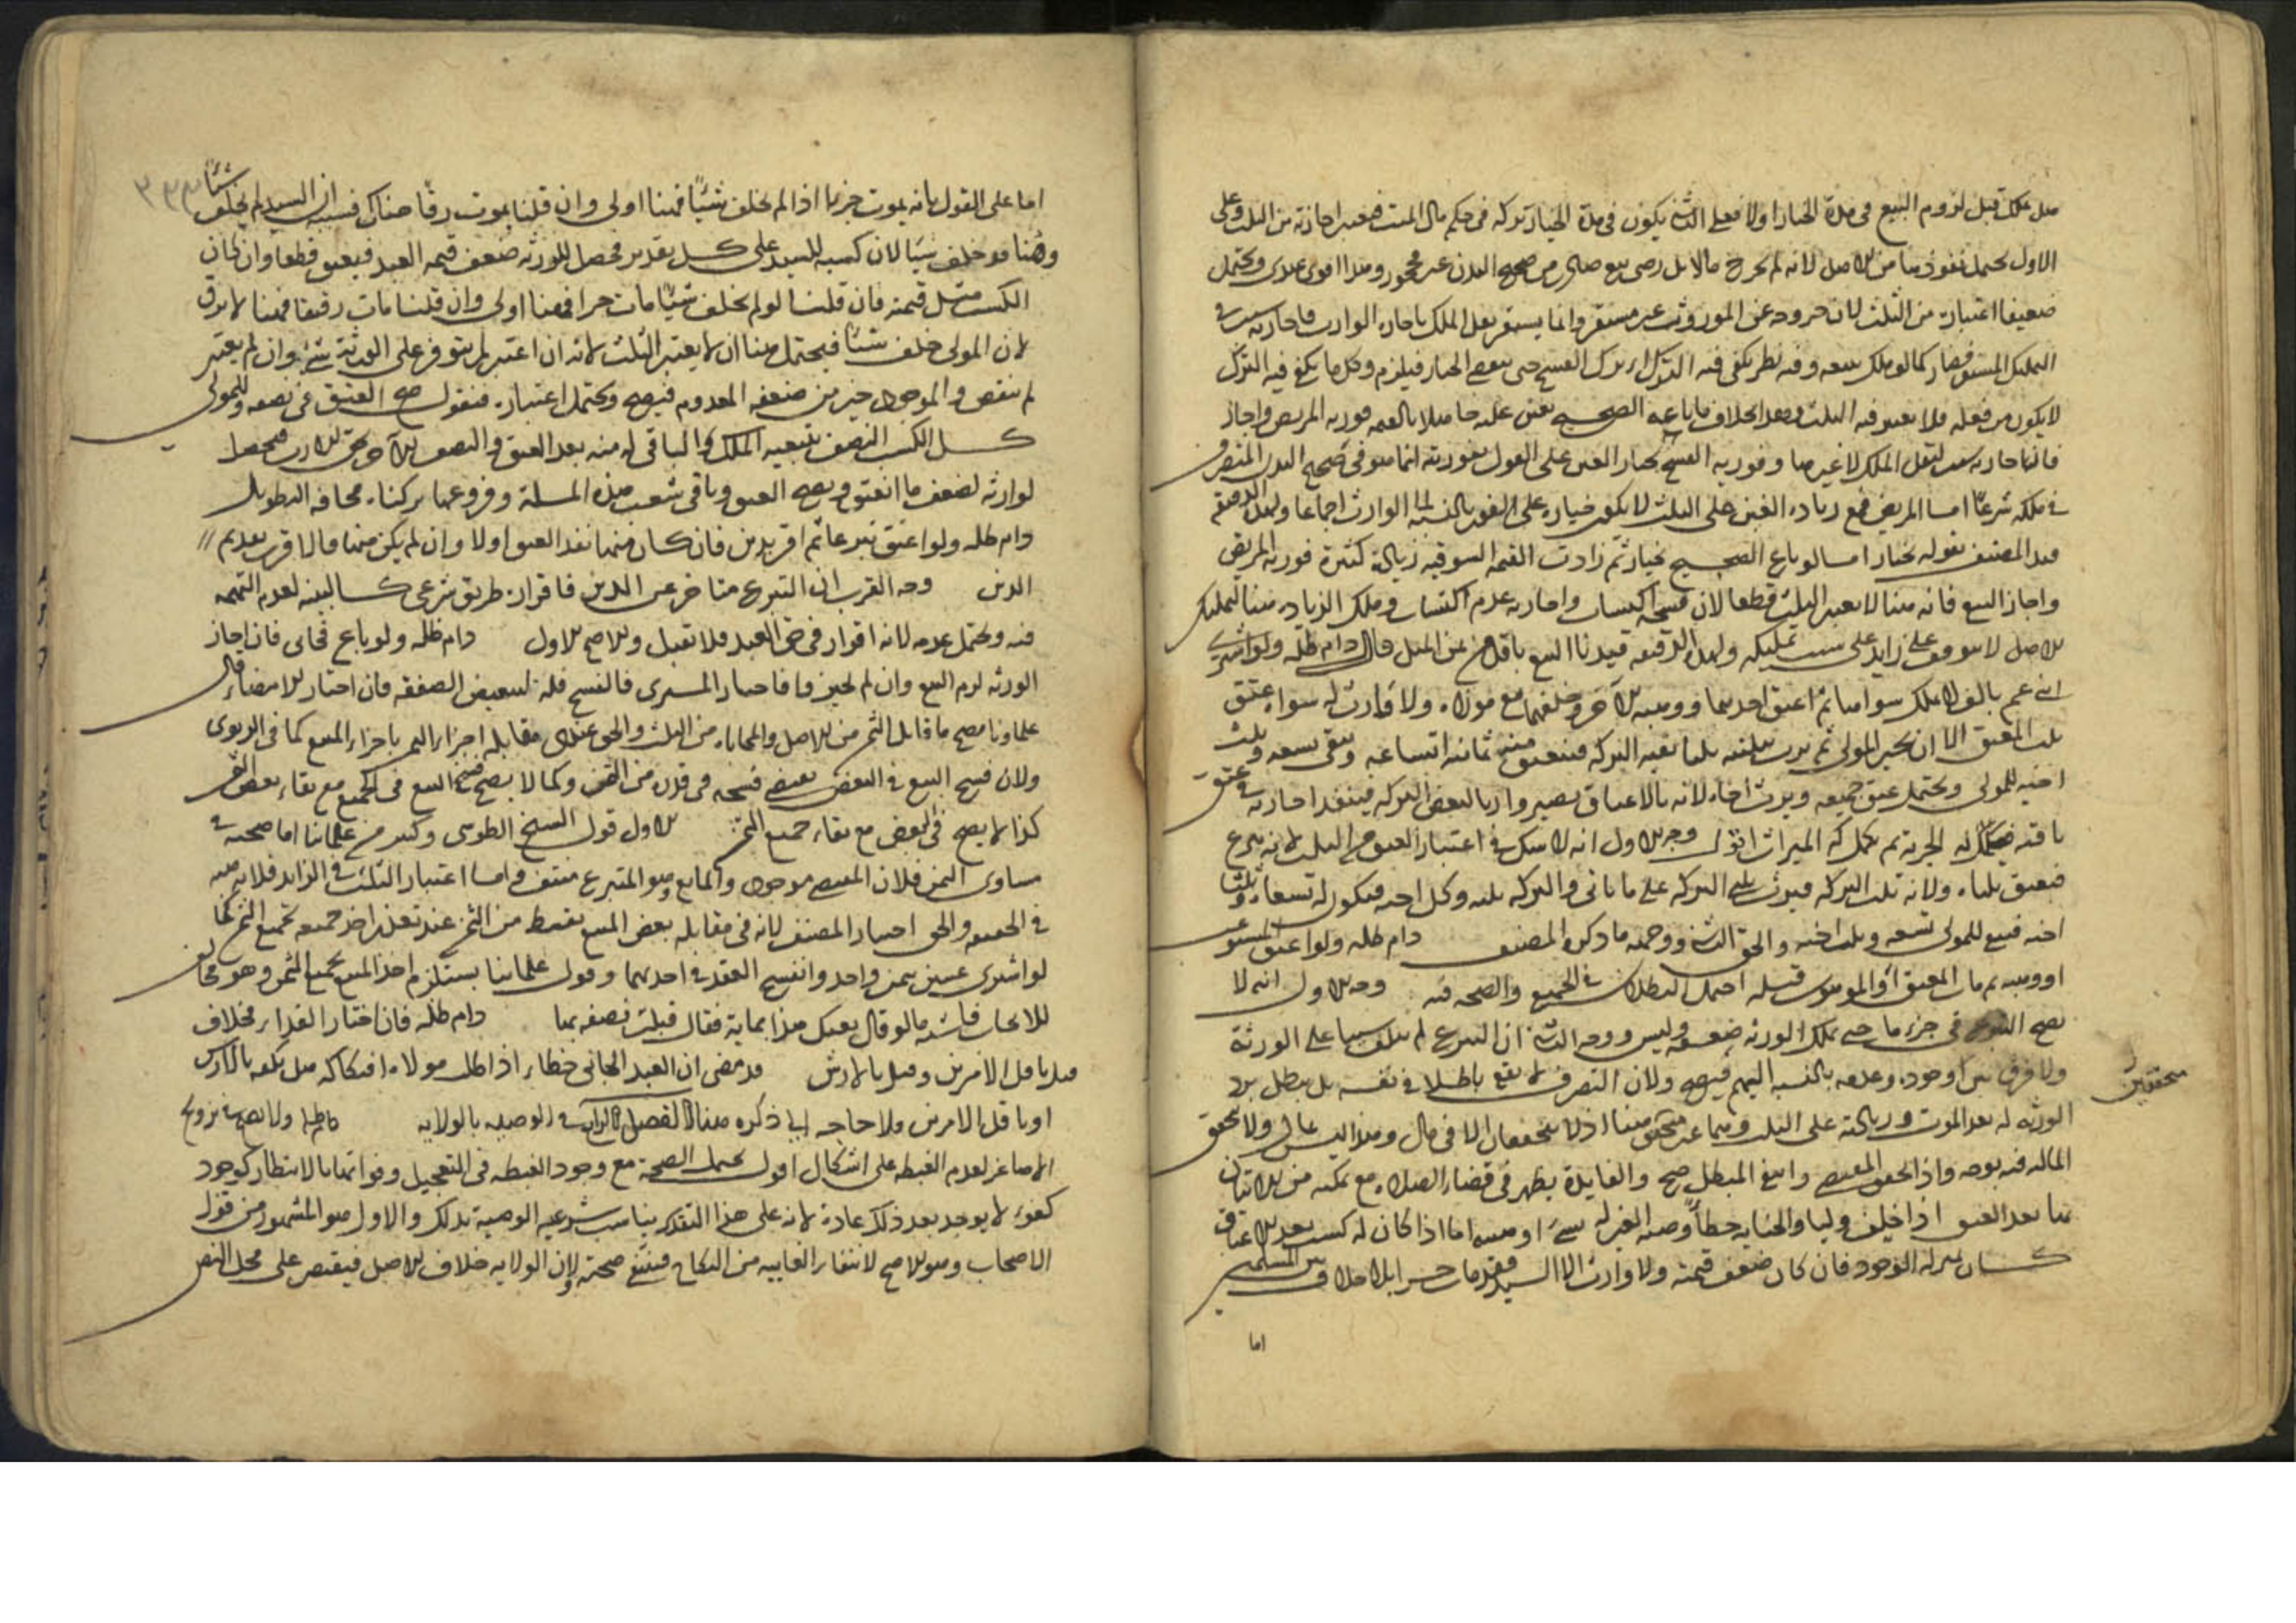 هل يملك قبل لزوم البيع في مدة الخيار او لا فعلى الثاني يكون في مدة الخيار تركه في حكم مال الميت فيعتبر اجازته من الثلث وعلى
الاول يحتمل نفوذها من الاصل لانه لم يخرج مالا بل رضى ببيع صدر من صحيح البدن غير محجور وهذا اقوى عندي ويحتمل
ضعيفا اعتباره من الثلث لان خروجه عن الموروث غير مستقر وانما يستقر نقل الملك باجازة الوارث فاجازته سبب في
التمليك المستقر فصار كما لو ملك ببيعه وفيه نظر يكفي فيه الترك اي ترك الفسخ حتى ينقضي الخيار فيلزم وكل ما يكفي فيه الترك
لا يكون من فعله فلا يعتبر فيه الثلث وهذا الخلاف
في ملكه شرعا اما المريض فمع زيادة الغبن على الثلث لا يكون خياره على الفور بالنسبة الى الوارث اجماعا ولهذه الدقيقة
قيد المصنف بقوله بخيار اما لو باع الصحيح بخيار ثم زادت القيمة السوقية زيادة كثيرة فورثه المريض
واجاز البيع فانه هنا لا يعتبر الثلث قطعا لان فسخه اكتساب واجازته عدم اكتساب وملك الزيادة هنا لتمليك
الاصل لا يتوقف على زايد على سبب تمليكه ولهذه الدقيقة قيدنا البيع باقل من ثمن المثل قال دام ظله ولو اشترى
ابني عم بالف لا يملك سواهما ثم اعتق احدهما ووهبه الآخر وخلفهما مع مولاه ولا وارث له سواه عتق
ثلثا المعتق الا ان يجيز المولى ثم يرث بثلثيه ثلثا بقية التركة فيعتق منه ثمانية اتساعه ويبقى تسعه وثلث
اخيه للمولى ويحتمل عتق جميعه ويرث اخاه لانه بالاعتاق يصير وارثا لبعض التركة فينفذ اجازته في عتق
باقيه فيكمل له الحرية ثم يكمل له الميراث اقول وجه الاول انه لا شك في اعتبار العتق من الثلث لانه تبرع
فيعتق ثلثاه ولانه ثلث التركة فيرث ثلثي التركة
اخيه فيبقى للمولى تسعه وثلث اخيه والحق الثاني ووجهه ما ذكره المصنف دام ظله ولو اعتق المستوعب
او وهبه ثم مات المعتق او الموهوب قبله احتمل البطلان في الجميع والصحة فيه وجه الاول انه لا
يصح التبرع في جزء ما حتى يملك الورثة ضعفه وليس ووجه الثاني ان التبرع لم يتلف شيئا على الورثة
ولا فرق بين وجوده وعدمه بالنسبة اليهم فيصح ولان التصرف لا يقع باطلا في نفسه بل يبطل برد
الورثة له بعد الموت وزيادته على الثلث وهما غير متحقق هنا اذ لا يتحققان الا في مال وهذا ليس بمال ولا تحقق
متحققين
المالية فيه بوجه واذا تحقق المقتضي وانتفى المبطل صح والفايدة تظهر في قضاء الصلاة مع تمكنه من الاتيان
بها بعد العتق اذا خلف وليا والجناية خطأ وصية الغير له بشيء او وهبه اما اذا كان له كسب بعد الاعتاق
كان بمنزلة الوجود فان كان ضعف قيمته ولا وارث الا السيد فقد مات حرا بلا خلاف بين المسلمين
اما
٣٣٣
اما على القول بانه يموت حرا ما اذا لم يخلف شيئا فهنا اولى وان قلنا يموت رقا هناك فسببه ان السيد لم يخلف شيئا
وهنا قد خلف شيئا لان كسبه للسيد على كل تقدير فحصل للورثة ضعف قيمة العبد فيعتق قطعا وان كان
الكسب مثل قيمته فان قلنا لو لم يخلف شيئا مات حرا فهنا اولى وان قلنا مات رقيقا فهنا لا يرق
لان المولى خلف شيئا فيحتمل هنا ان لا يعتبر الثلث لانه ان اعتبر لم يتوفر على الورثة شيء وان لم يعتبر
لم ينقص والموجود خير من ضعفه المعدوم فيصح ويحتمل اعتباره فنقول صح العتق في نصفه وللمولى
كل الكسب النصف بتبعية الملك والباقي له منه بعد العتق والنصف الآخر بحق الارث فحصل
لوارثه ضعف ما انعتق ويصح العتق وباقي شعب هذه المسئلة وفروعها تركناه مخافة التطويل
دام ظله ولو اعتق تبرعا ثم اقر بدين فان كان متهما نفذ العتق اولا وان لم يكن متهما فالاقرب تقديم
الدين وجه القرب ان التبرع متاخر عن الدين فاقراره طريق شرعي كالبينة لعدم التهمة
فيه ويحتمل عدمه لانه اقرار في حق العبد فلا تقبل والاصح الاول دام ظله ولو باع فحابى فان اجاز
الورثة لزم البيع وان لم يجيزوا فاختار المشتري فالفسخ فله لتبعيض الصفقة فان اختار الامضاء قال
علماؤنا يصح ما قابل الثمن من الاصل والمحاباة من الثلث والحق عندي مقابلة اجزاء الثمن باجزاء المبيع كما في الربوي
ولان فسخ البيع في البعض يقتضي فسخه في قدره من الثمن وكما لا يصح فسخ البيع في الجميع مع بقاء بعض الثمن
كذا لا يصح في البعض مع بقاء جميع الثمن الاول قول الشيخ الطوسي وكثير من علمائنا اما صحته في
مساوى الثمن فلان المقتضي موجود والمانع وهو التبرع منتف واما اعتبار الثلث في الزايد فلانه هبة
في الحقيقة والحق اختيار المصنف لانه في مقابلة بعض المبيع بقسط من الثمن عند تعذر اخذ جميعه بجميع الثمن كما
لو اشترى عبدين بثمن واحد وانفسخ العقد في احدهما وقول علمائنا يستلزم اخذ المبيع بجميع الثمن وهو مخالف
للايجاب فاشبه ما لو قال بعتك هذا بماية فقال قبلت نصفه بها دام ظله فان اختار الفداء فخلاف
قيل باقل الامرين وقيل بالارش قد مضى ان العبد الجاني خطاء اذا طلب مولاه افتكاكه هل يفكه بالارش
او باقل الامرين ولا حاجة الى ذكره هنا الفصل الرابع في الوصية بالولاية دام ظله ولا يصح تزويج
الاصاغر لعدم الغبطة على اشكال اقول يحتمل الصحة مع وجود الغبطة في التعجيل وفواتها بالانتظار كوجود
كفوء لا يوجد بعد ذلك عادة لانه على هذا التقدير يناسب شرعية الوصية بذلك والاول هو المشهور من قول
الاصحاب وهو الاصح لانتفاء الغاية من النكاح فينتفي صحته لان الولاية خلاف الاصل فيقتصر على محل النص